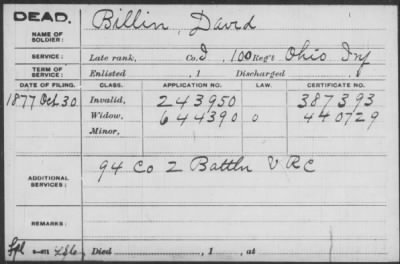 DEAD.
Billin, David
NAME OF SOLDIER:
SERVICE: Late rank, Co. I, 100 Reg't Ohio Inf
TERM OF SERVICE: Enlisted , 1 Discharged , 1
DATE OF FILING. CLASS. APPLICATION NO. LAW. CERTIFICATE NO.
1877 Oct 30 Invalid, 243950 387393
Widow, 644390 0 440729
Minor,
94 Co 2 Battln V R C
ADDITIONAL SERVICES:
REMARKS:
Died , 1 , at